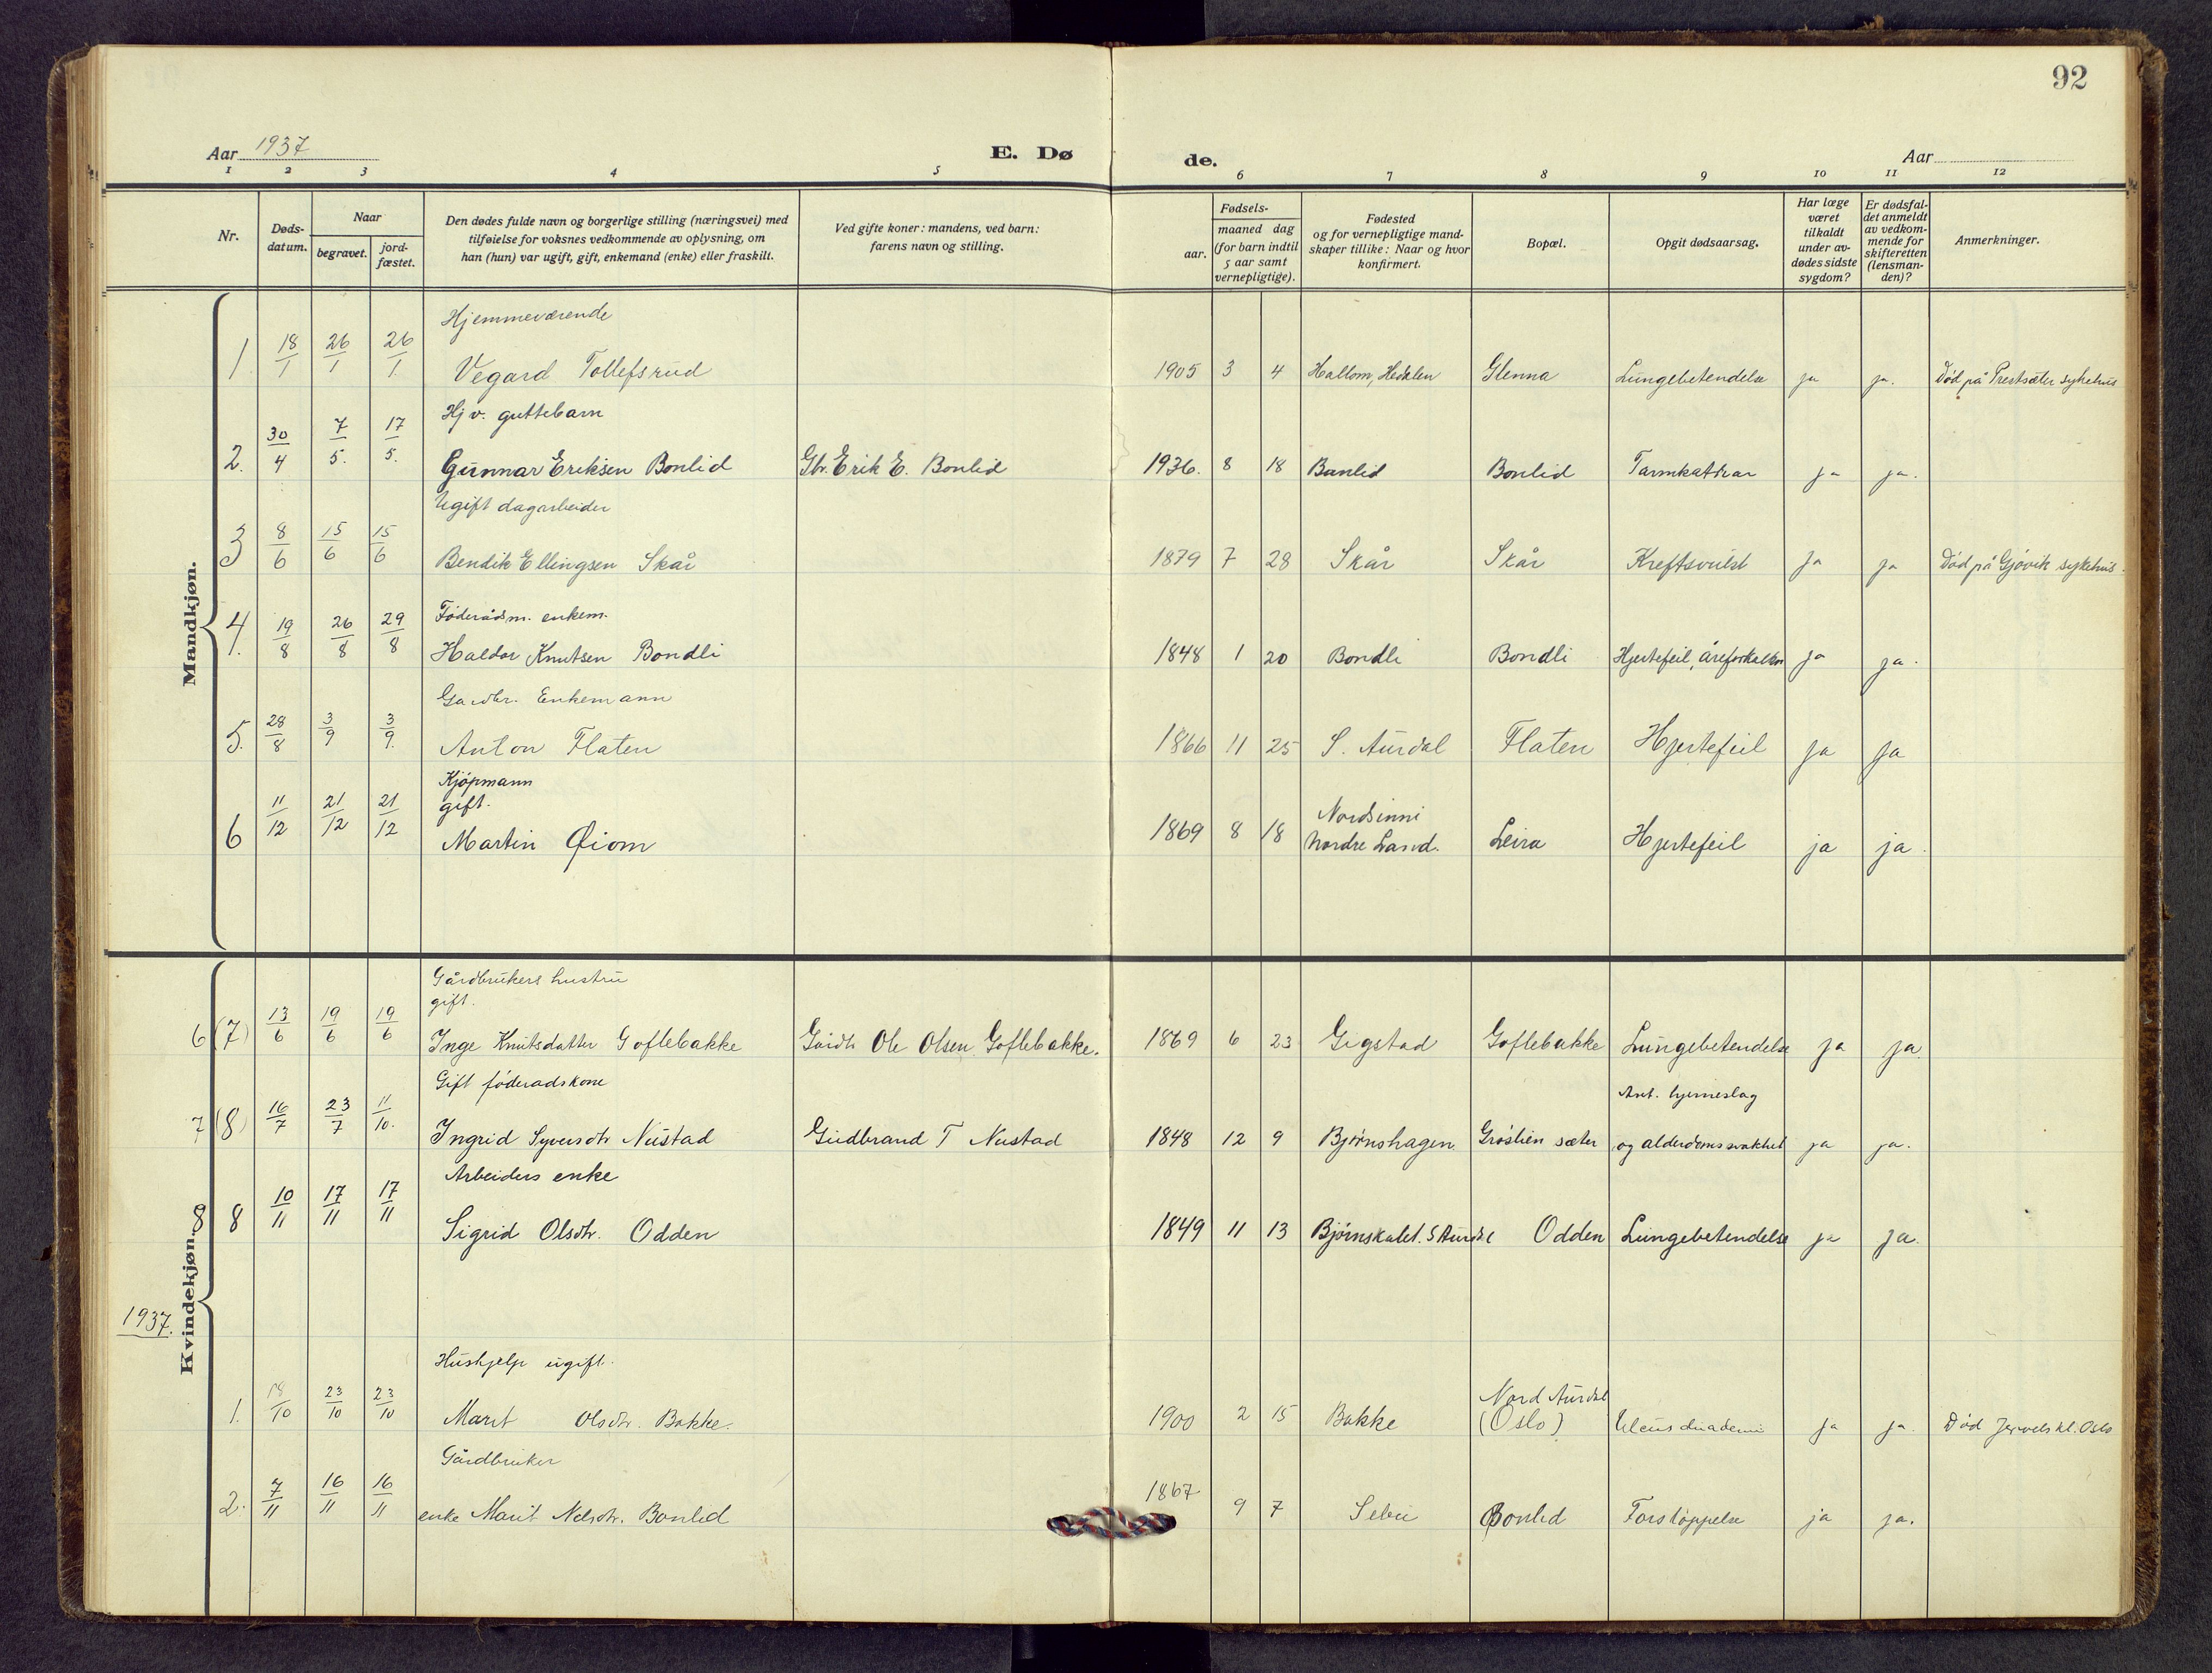 92
Aar 1937
E. Dø
de.
Aar
1 2 3 4 5 6 7 8 9 10 11 12
Nr.
Døds-
datum.
Naar
begravet.
jord-
fæstet.
Den dødes fulde navn og borgerlige stilling (næringsvei) med
tilføielse for voksnes vedkommende av oplysning, om
han (hun) var ugift, gift, enkemand (enke) eller fraskilt.
Ved gifte koner: mandens, ved barn:
farens navn og stilling.
Fødsels-
aar.
maaned dag
(for barn indtil
5 aar samt
vernepligtige).
Fødested
og for vernepligtige mand-
skaper tillike: Naar og hvor
konfirmert.
Bopæl.
Opgit dødsaarsag.
Har læge
været
tilkaldt
under av-
dødes sidste
sygdom?
Er dødsfal-
det anmeldt
av vedkom-
mende for
skifteretten
(lensman-
den)?
Anmerkninger.
Mandkjøn.
Hjemmeværende
1 18/1 26/1 26/1. Vegard Tollefsrud 1905 3 4 Hallom, Hedalen Glenna Lungebetendelse ja ja. Død på Prestsæter sykehus
Hjv. guttebarn
2. 30/4 7/5. 17/5. Gunnar Eriksen Bonlid Gbr. Erik E. Bonlid 1936. 8 18 Bonlid Bonlid Tarmkatarr ja ja.
Ugift dagarbeider
3 8/6 15/6 15/6 Bendik Ellingsen Skår 1879 7 28 Skår Skår Kreftsvulst ja ja Død på Gjøvik sykehus.
Føderådsm. enkem.
4. 19/8 26/8 29/8 Haldor Knutsen Bondli 1848 1 20 Bondli Bondli Hjertefeil, åreforkalkn ja ja.
Gardbr. Enkemann
5. 28/8 3/9 3/9. Anton Flaten 1866 11 25 S. Aurdal Flaten Hjertefeil ja ja
Kjøpmann
gift.
Nordsinni
6 11/12 21/12 21/12 Martin Øiom 1869 8 18 Nordre Land. Leira Hjertefeil ja ja.
Kvindekjøn.
Gårdbrukers hustru
gift.
6 (7) 13/6 19/6 19/6 Inge Knutsdatter Goflebakke Gårdb Ole Olsen Goflebakke. 1869 6 23 Gigstad Goflebakke Lungebetendelse ja ja
Gift føderadskone
Ant. hjerneslag
7 (8) 16/7 23/7 11/10. Ingrid Syversdtr Nustad Gudbrand T Nustad 1848 12 9 Bjørnshagen Grøslien sæter og alderdomssvakhet ja ja.
Arbeiders enke
8 8 10/11 17/11 17/11 Sigrid Olsdtr. Odden 1849 11 13 Bjørnskalet. S Aurdal Odden Lungebetendelse ja ja.
1937.
Hushjelp ugift.
Nord Aurdal
1. 18/10 23/10 23/10 Marit Olsdtr. Bakke. 1900 2 15 Bakke (Oslo) Ulcus ja ja. Død kl. Oslo
Gårdbruker
2. 7/11 16/11 16/11 enke Marit Nelsdtr. Bonlid 1867 9 7 Sebu Bonlid Forstoppelse ja ja.